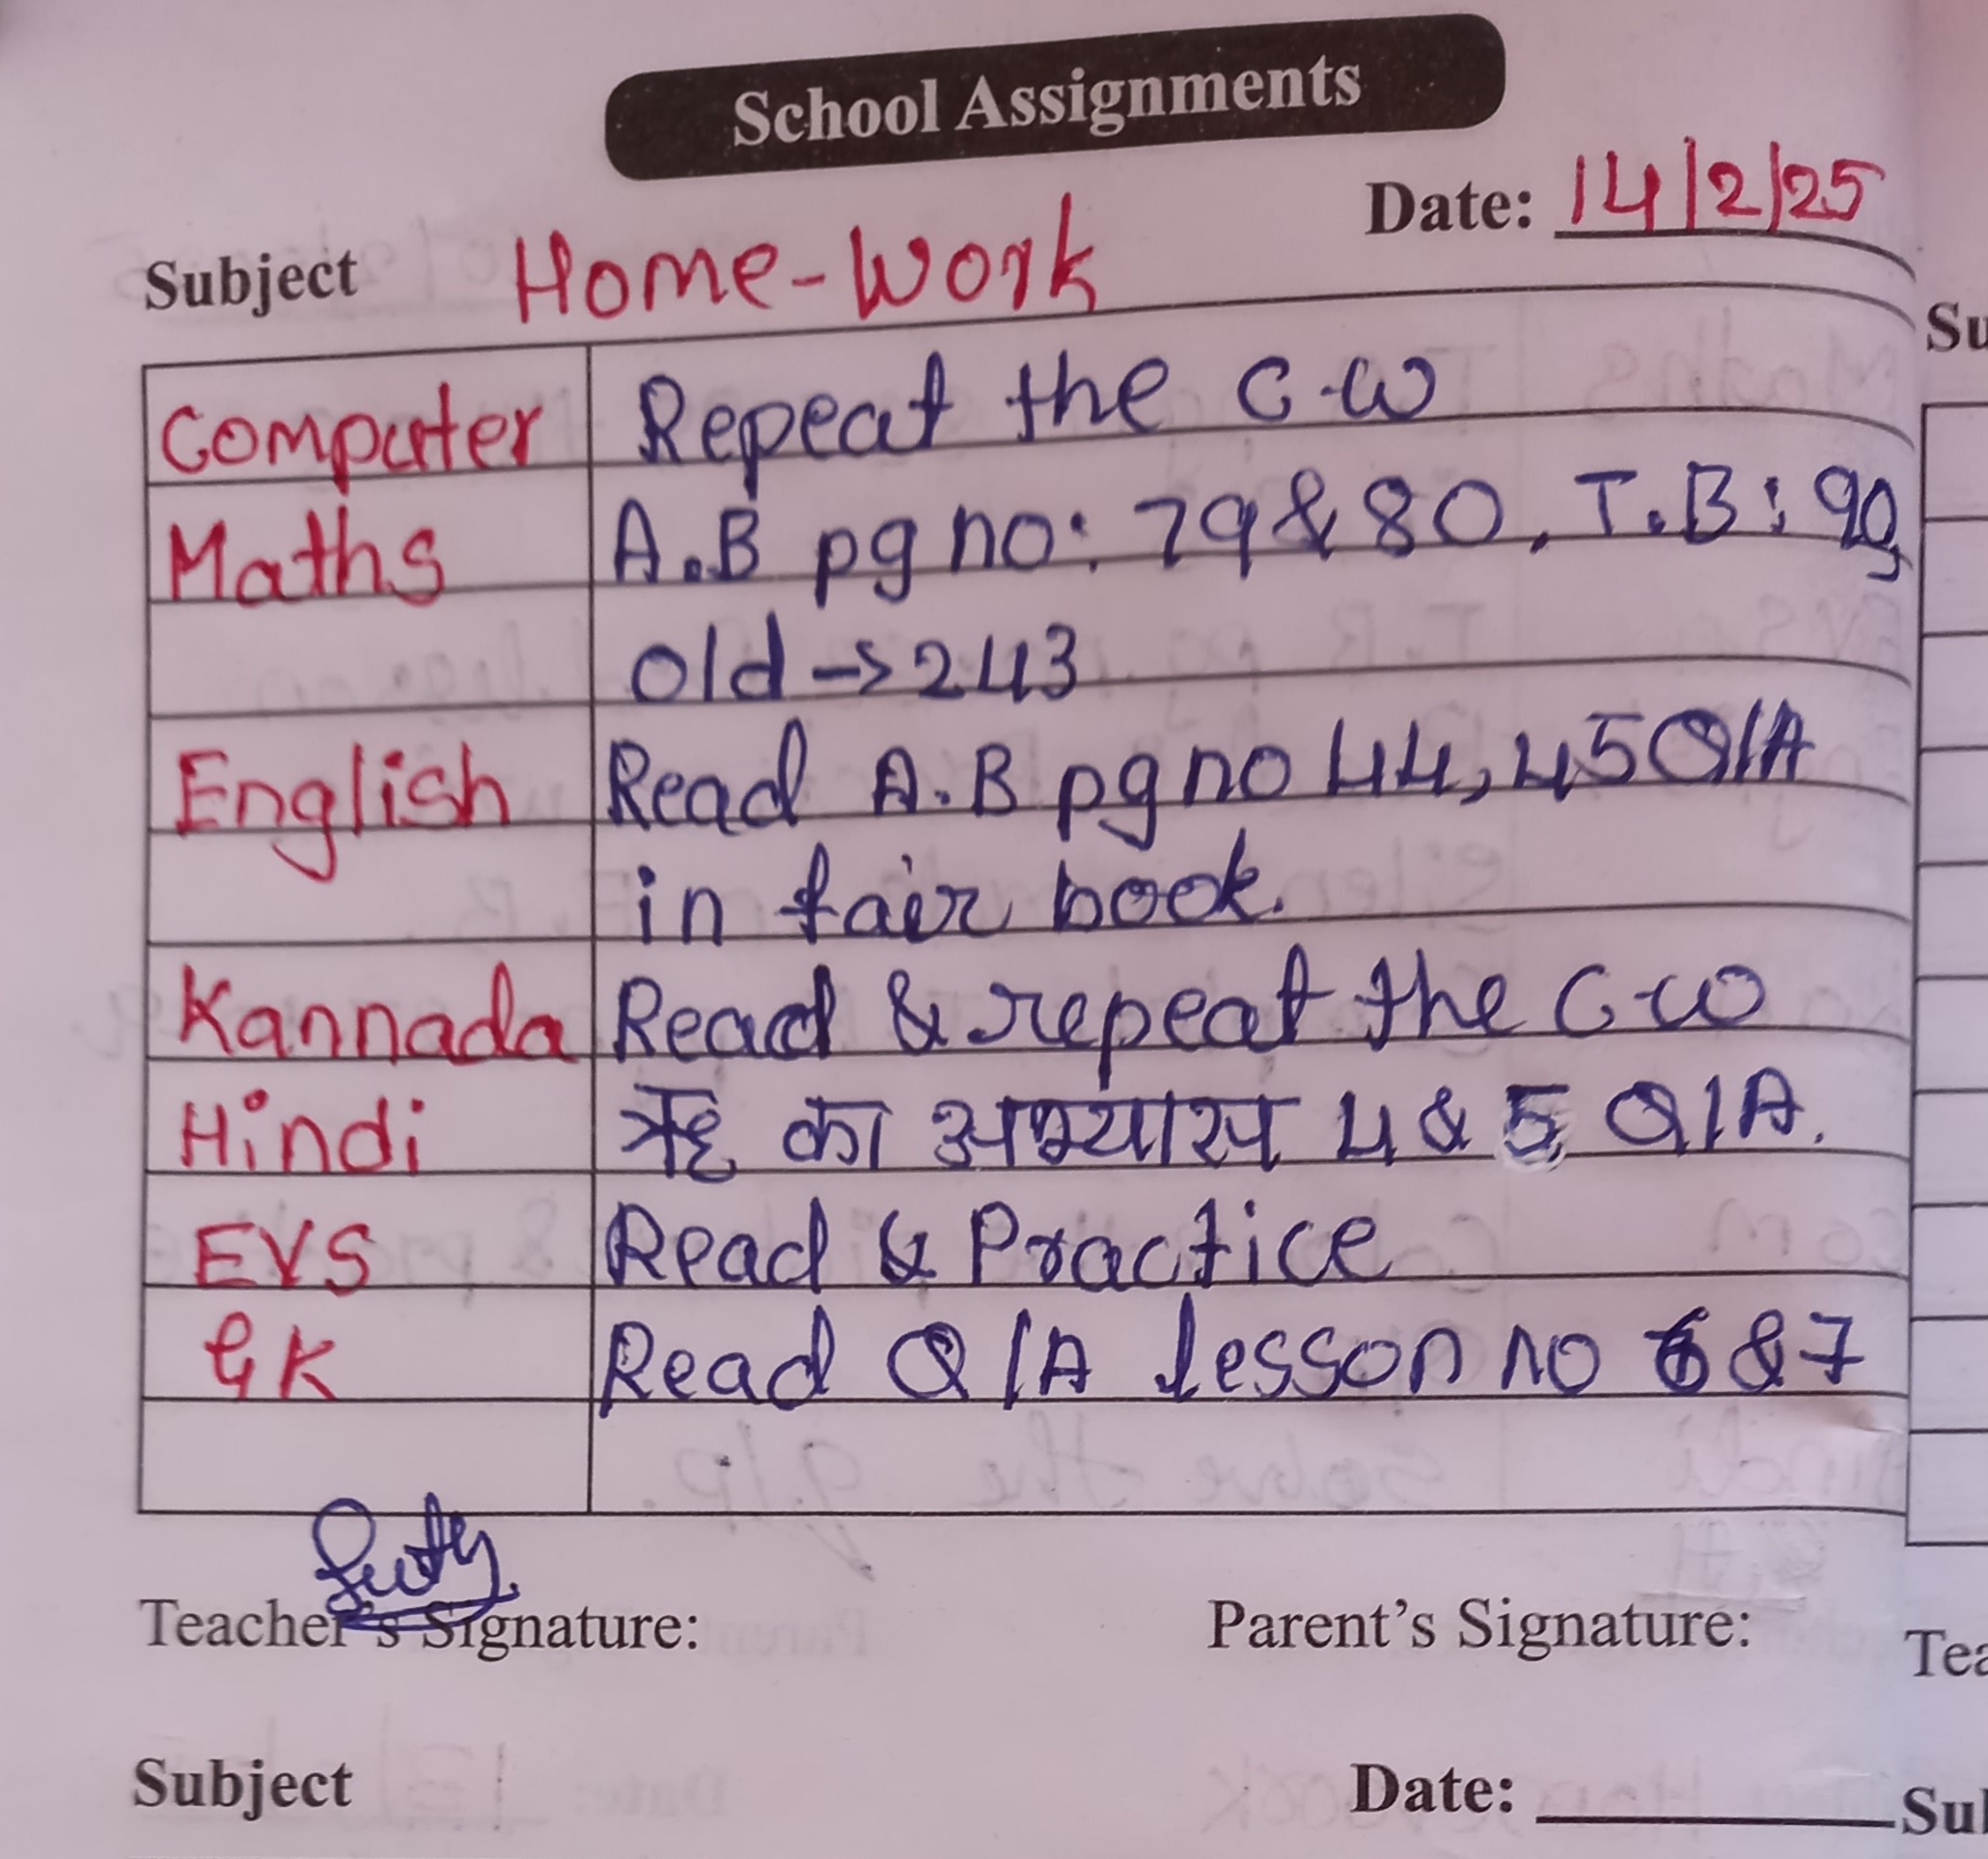 School Assignments
Date: 14/2/25
Subject Home-Work
Computer Repeat the C.W
Maths A.B pg no: 79 & 80, T.B: 90,
old -> 243
English Read A.B pg no 44, 45 Q/A
in fair book.
Kannada Read & repeat the C.W
Hindi का अभ्यास 4 & 5 Q/A.
EVS Read & Practice
GK Read Q/A lesson no 6 & 7
Teacher's Signature: Parent's Signature:
Subject Date: